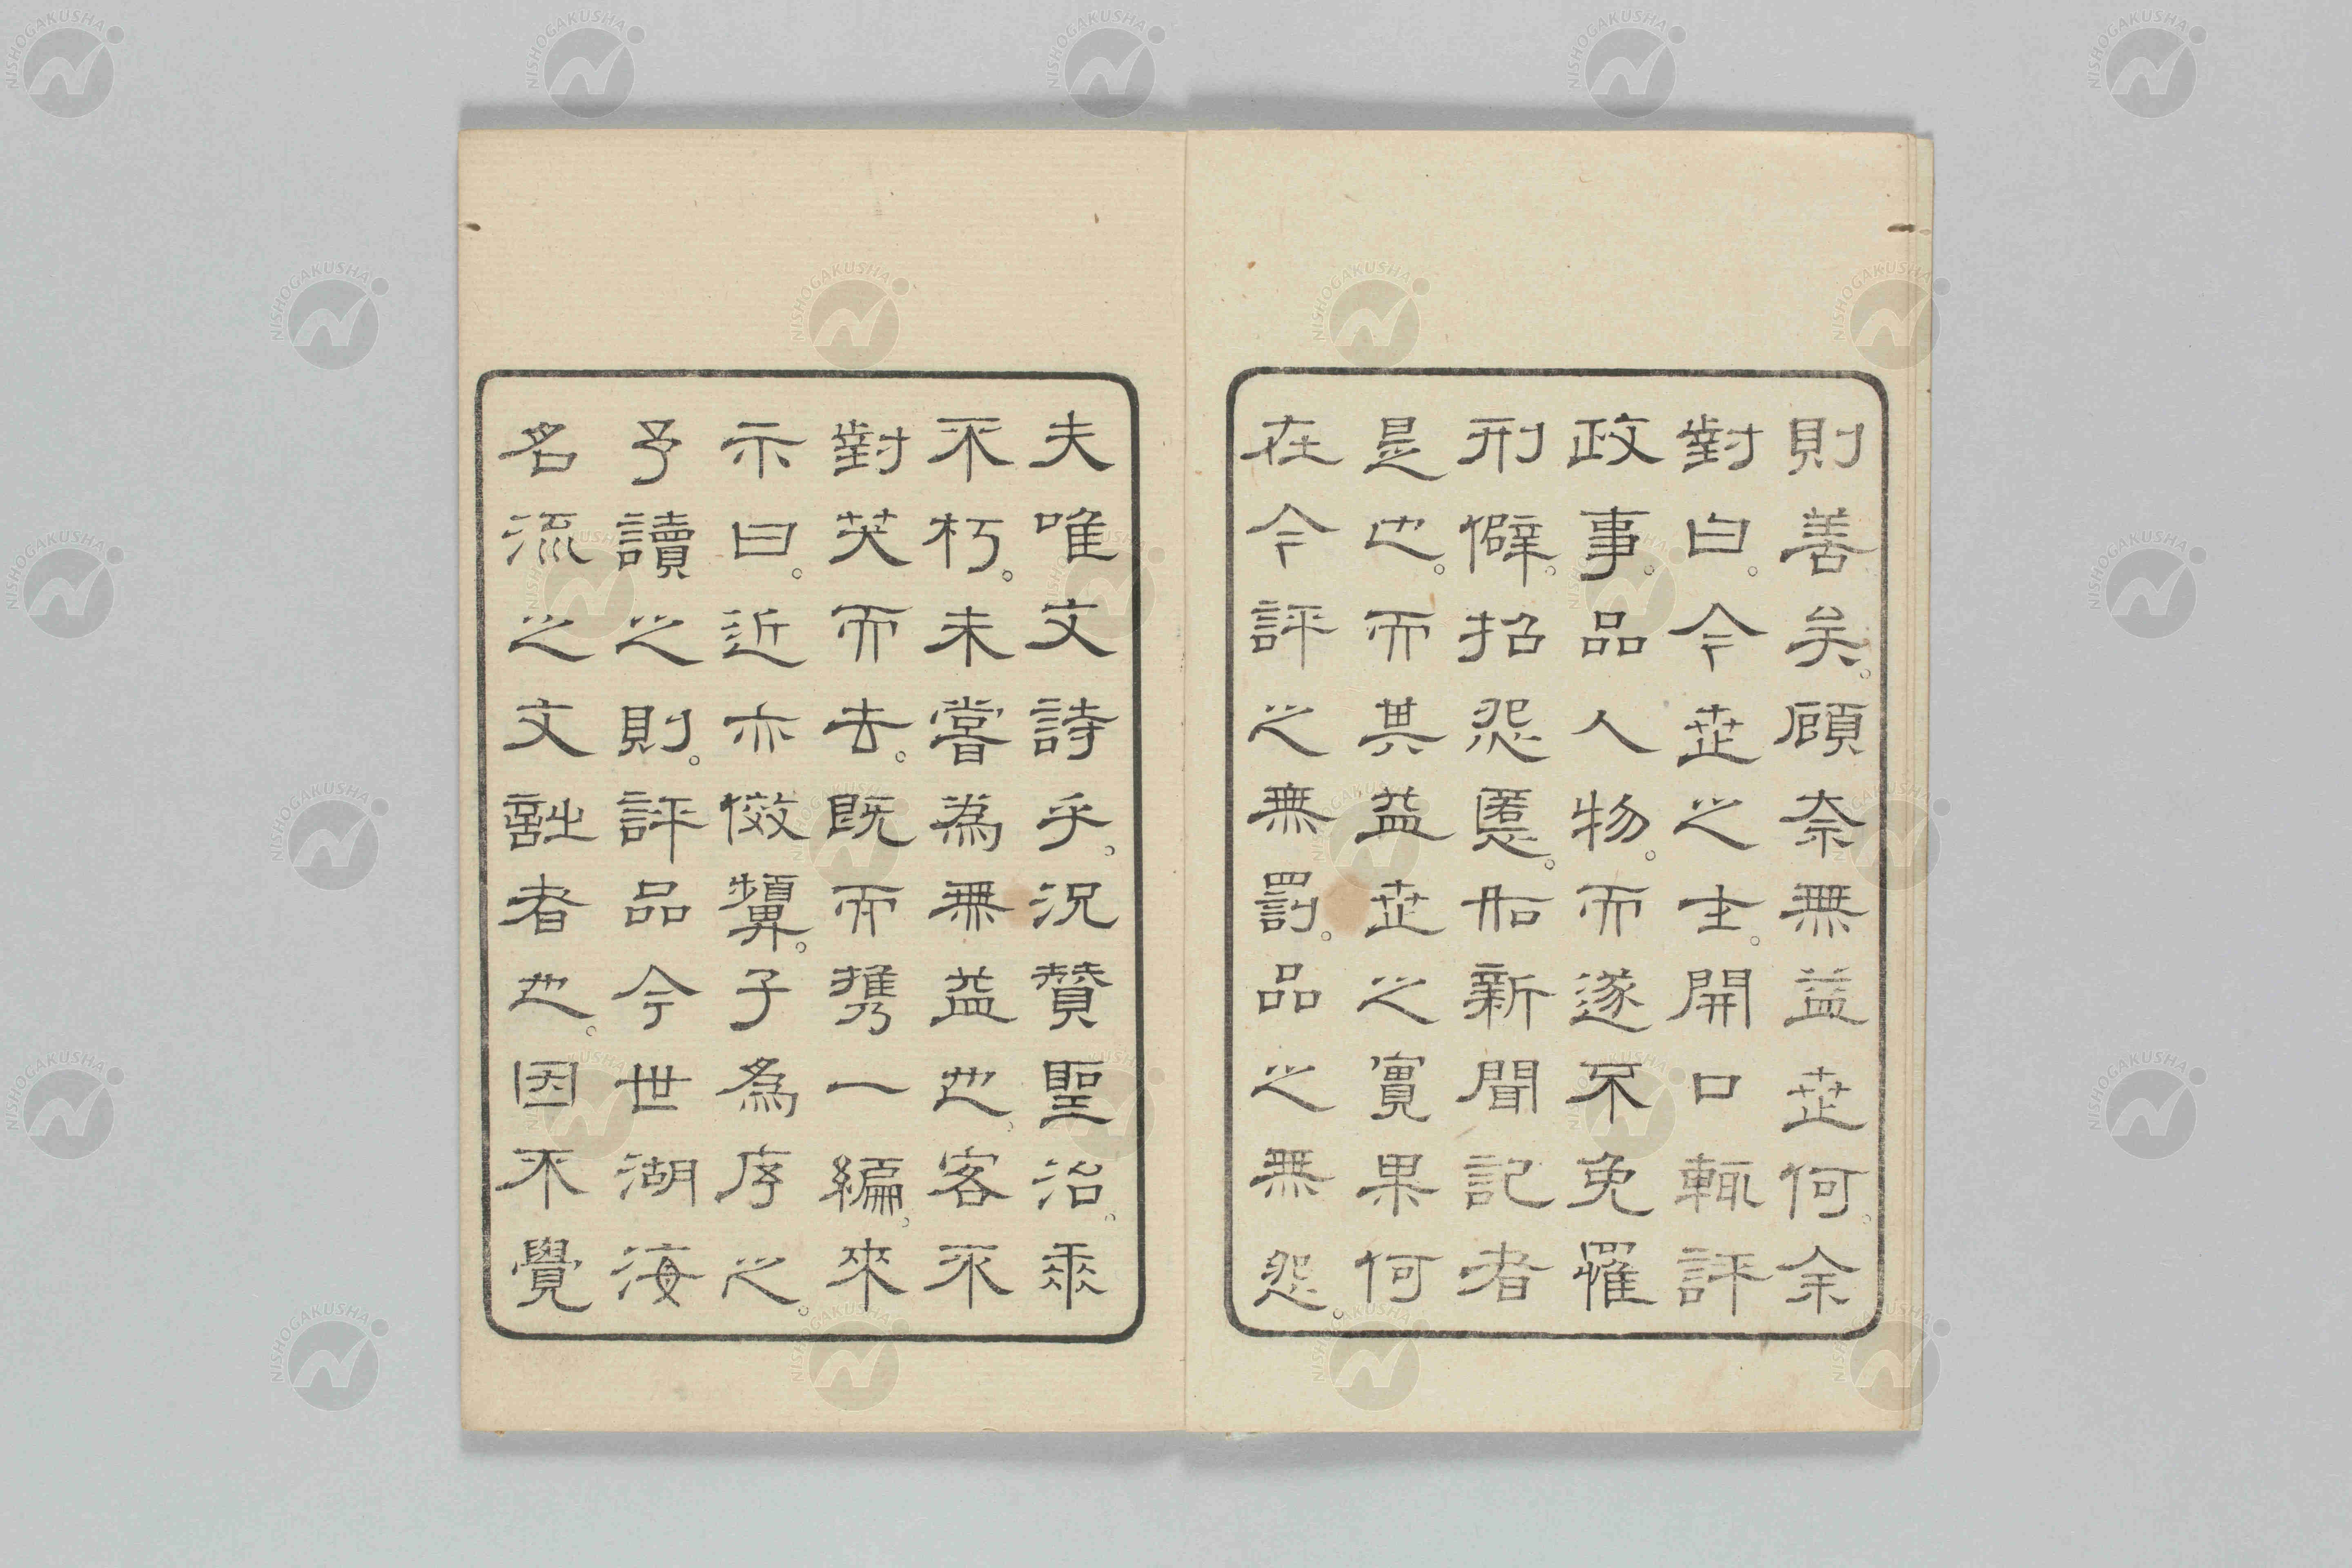 則善矣。顧奈無益世何。余
對曰。今世之士。開口輒評
政事。品人物。而遂不免罹
刑僻。招怨慝。如新聞記者
是也。而其益世之實果何
在。今評之無罰。品之無怨。
夫唯文詩乎。況贊聖治。垂
不朽。未嘗為無益也。客不
對英而去。既而携一編。來
示曰。近亦傚顰。子為序之。
予讀之則。評品今世湖海
名流之文詩者也。因不覺
NISHOGAKUSHA